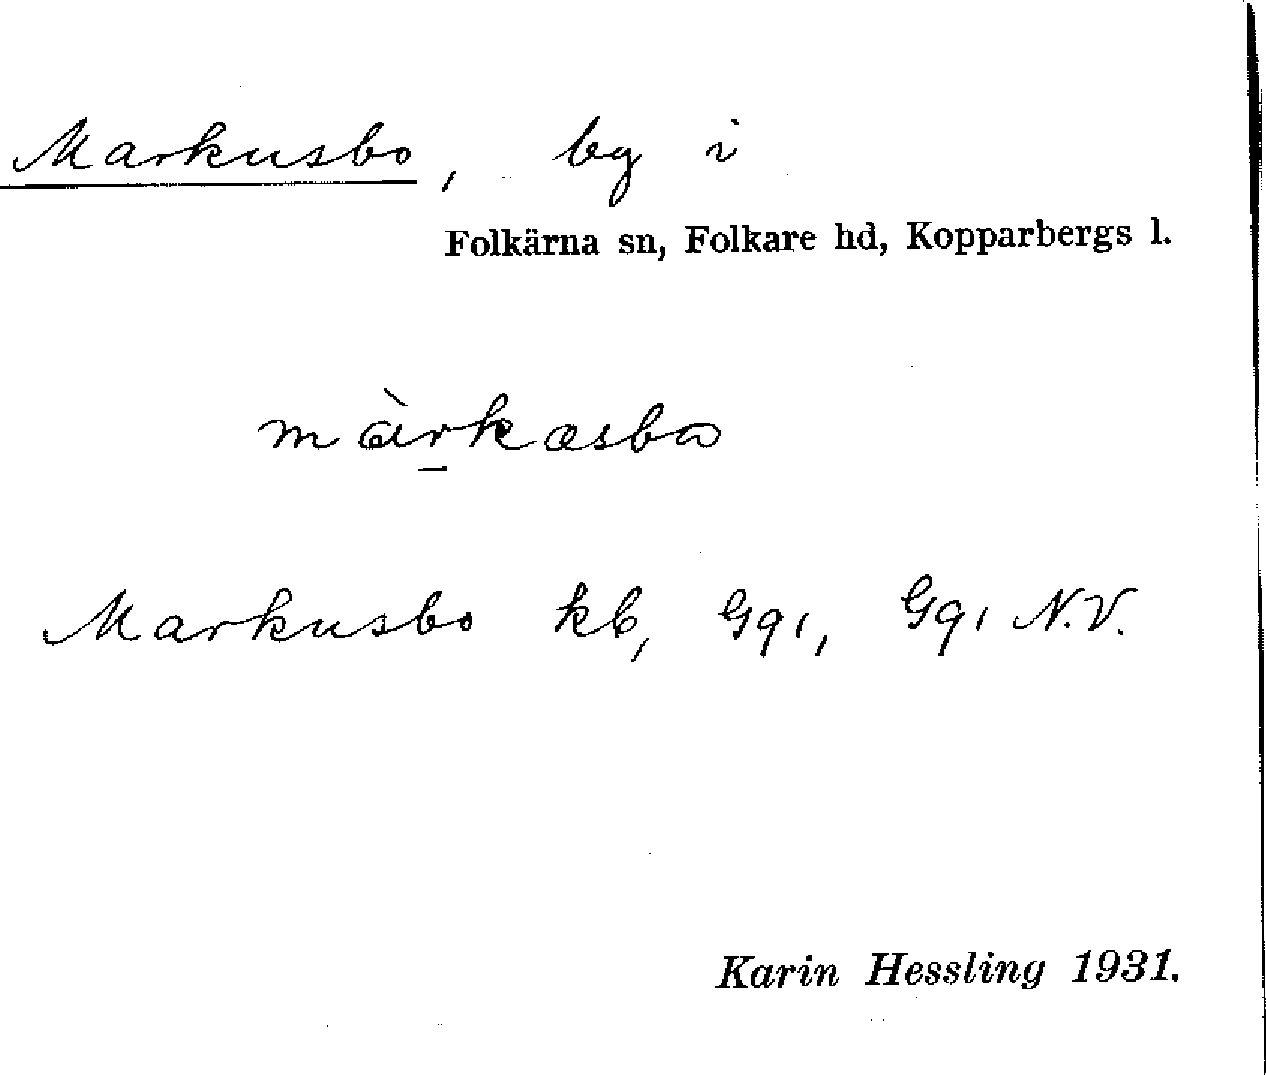 Markusbo, by i
Folkärna sn, Folkare hd, Kopparbergs l.
màrkasbo
Markusbo kb, Gg 1, Gg 1 N.V.
Karin Hessling 1931.